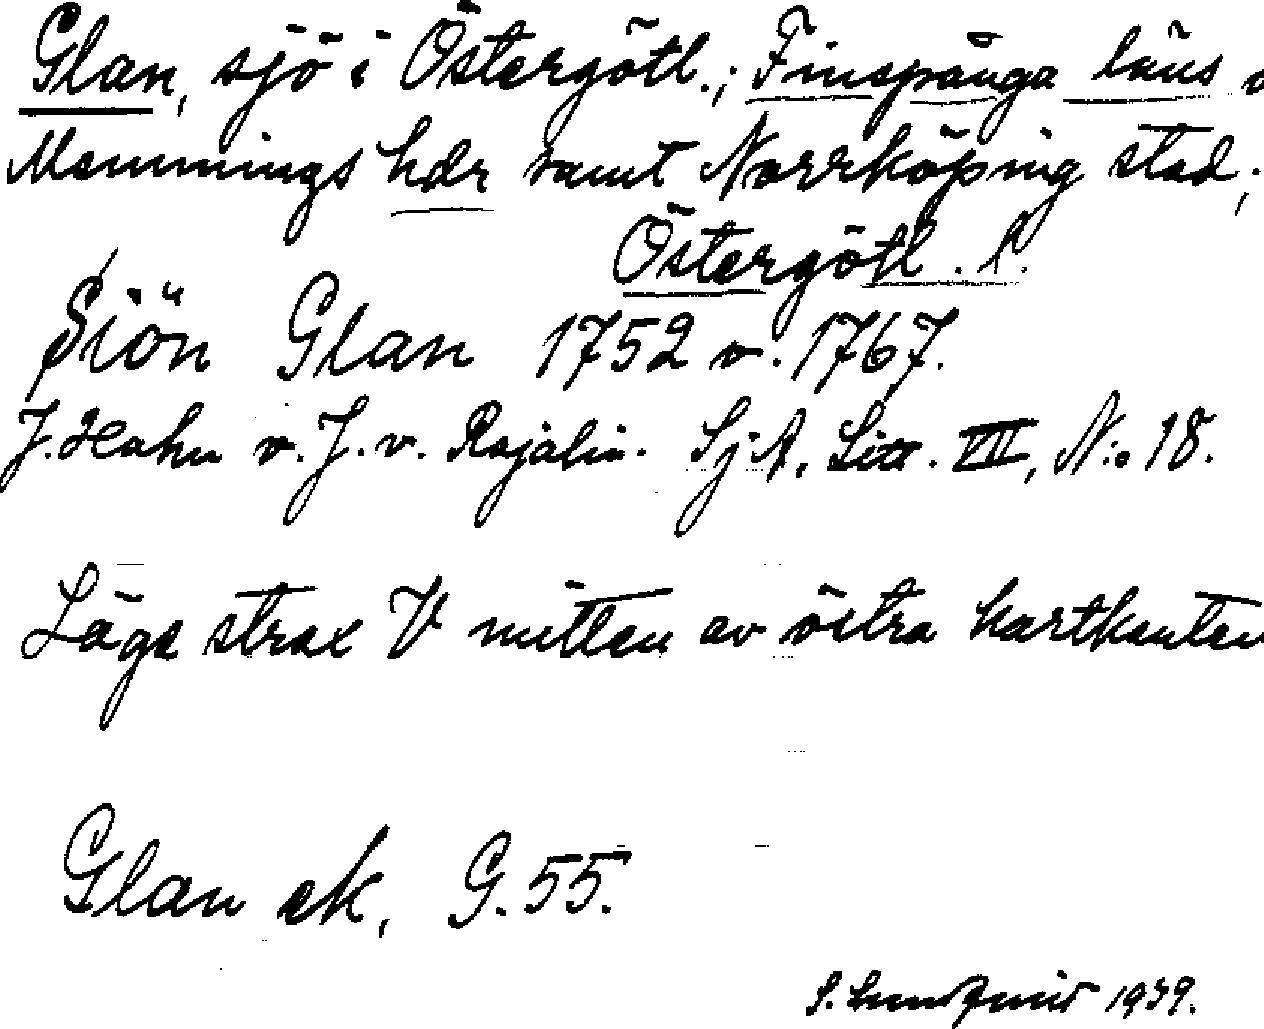 Glan, sjö i Östergötl.; Finspånga läns o
Memmings hdr samt Norrköping stad;
Östergötl. l.
Siön Glan 1752 o. 1767.
J. Hahn o. J. v. Rajalin. SjA, Litt. VII, N:o 18.
Läge strax V mitten av östra kartkanten
Glan ek, G. 55.
S. Lundquist 1939.